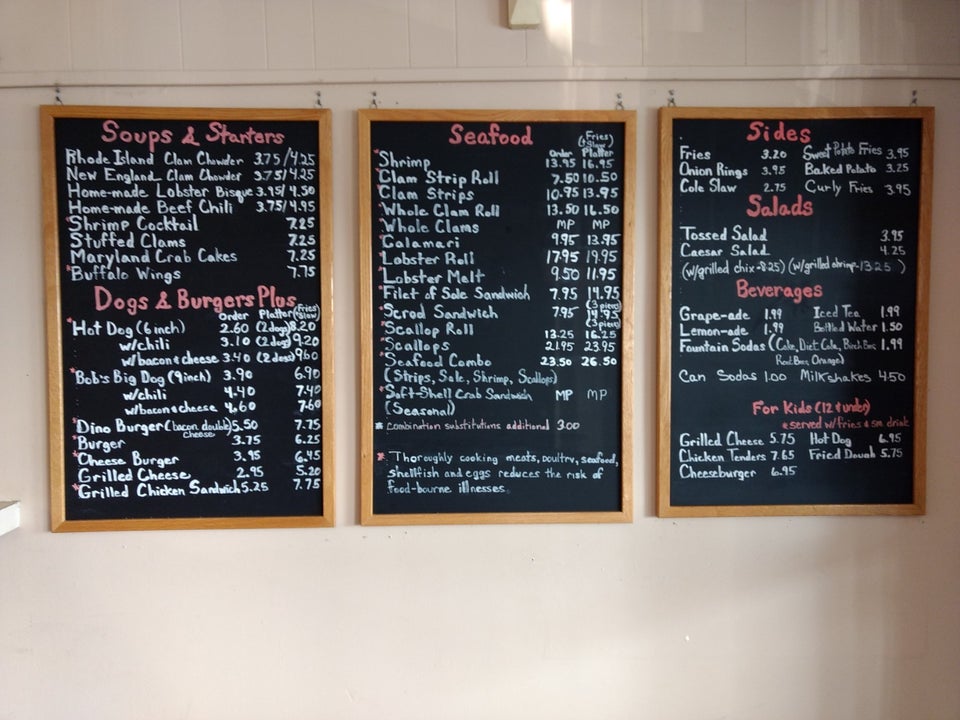 Soups & Starters
Rhode Island Clam Chowder 3.75/4.25
New England Clam Chowder 3.75/4.25
Home-made Lobster Bisque 3.95/4.50
Home-made Beef Chili 3.75/4.95
*Shrimp Cocktail 7.25
Stuffed Clams 7.25
Maryland Crab Cakes 7.25
*Buffalo Wings 7.75
Dogs & Burgers Plus
Order Platter (Fries/Slaw)
*Hot Dog (6 inch) 2.60 (2 dogs) 8.20
w/chili 3.10 (2 dogs) 9.20
w/bacon & cheese 3.40 (2 dogs) 9.60
*Bob's Big Dog (9inch) 3.90 6.90
w/chili 4.40 7.40
w/bacon & cheese 4.60 7.60
*Dino Burger (bacon double cheese) 5.50 7.75
*Burger 3.75 6.25
*Cheese Burger 3.95 6.45
Grilled Cheese 2.95 5.20
*Grilled Chicken Sandwich 5.25 7.75
Seafood
(Fries & Slaw)
Order Platter
*Shrimp 13.95 16.95
*Clam Strip Roll 7.50 10.50
*Clam Strips 10.95 13.95
*Whole Clam Roll 13.50 16.50
*Whole Clams MP MP
*Calamari 9.95 13.95
*Lobster Roll 17.95 19.95
*Lobster Melt 9.50 11.95
*Filet of Sole Sandwich 7.95 14.95
(3 piece)
*Scrod Sandwich 7.95 14.95
(3 piece)
*Scallop Roll 13.25 16.25
*Scallops 21.95 23.95
*Seafood Combo 23.50 26.50
(Strips, Sole, Shrimp, Scallops)
*Soft-Shell Crab Sandwich MP MP
(Seasonal)
* combination substitutions additional 3.00
*: Thoroughly cooking meats, poultry, seafood,
shellfish and eggs reduces the risk of
food-bourne illnesses.
Sides
Fries 3.20 Sweet Potato Fries 3.95
Onion Rings 3.95 Baked Potato 3.25
Cole Slaw 2.75 Curly Fries 3.95
Salads
Tossed Salad 3.95
Caesar Salad 4.25
(w/grilled chix-8.25) (w/grilled shrimp-13.25)
Beverages
Grape-ade 1.99 Iced Tea 1.99
Lemon-ade 1.99 Bottled Water 1.50
Fountain Sodas (Coke, Diet Coke, Birch Beer, 1.99
Root Beer, Orange)
Can Sodas 1.00 Milkshakes 4.50
For Kids (12 & under)
*served w/fries & sm. drink
Grilled Cheese 5.75 Hot Dog 6.95
Chicken Tenders 7.65 Fried Dough 5.75
Cheeseburger 6.95